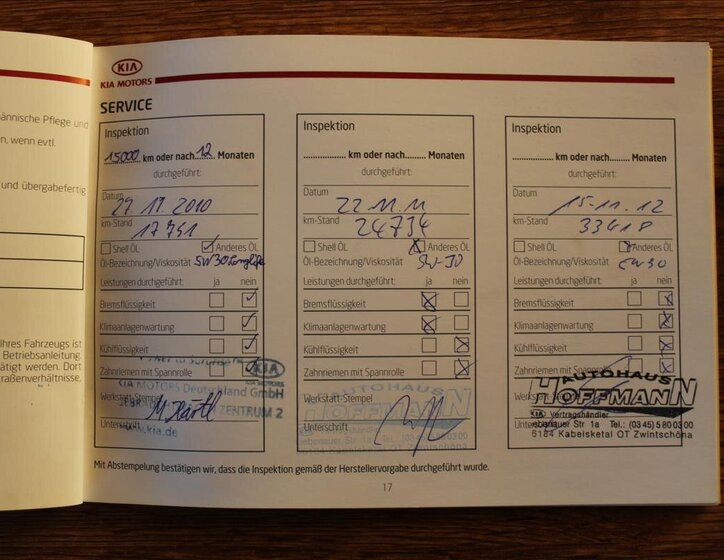 ännische Pflege und
n, wenn evtl.
und übergabefertig
Ihres Fahrzeugs ist
Betriebsanleitung.
tätigt werden. Dort
raßenverhältnisse,
KIA
KIA MOTORS
SERVICE
Inspektion
15000 km oder nach 12 Monaten
durchgeführt:
Datum
29.11.2010
km-Stand
17791
Shell ÖL
Anderes ÖL
Öl-Bezeichnung/Viskosität 5W30 Longlife
Leistungen durchgeführt: ja nein
Bremsflüssigkeit
Klimaanlagenwartung
Kühlflüssigkeit
Zahnriemen mit Spannrolle
KIA
KIA MOTORS Deutschland GmbH
ZENTRUM 2
Werkstatt-Stempel
Unterschrift
www.kia.de
Inspektion
km oder nach Monaten
durchgeführt:
Datum
22.11.11
km-Stand
24734
Shell ÖL
Anderes ÖL
Öl-Bezeichnung/Viskosität
Leistungen durchgeführt: ja nein
Bremsflüssigkeit
Klimaanlagenwartung
Kühlflüssigkeit
Zahnriemen mit Spannrolle
AUTOHAUS
HOFFMANN
Werkstatt-Stempel
Unterschrift
Inspektion
km oder nach Monaten
durchgeführt:
Datum
15.11.12
km-Stand
33418
Shell ÖL
Anderes ÖL
Öl-Bezeichnung/Viskosität
Leistungen durchgeführt: ja nein
Bremsflüssigkeit
Klimaanlagenwartung
Kühlflüssigkeit
Zahnriemen mit Spannrolle
AUTOHAUS
HOFFMANN
KIA Vertragshändler
Str. 1a Tel.: (03 45) 5 80 03 00
Kabelsketal OT Zwintschöna
Mit Abstempelung bestätigen wir, dass die Inspektion gemäß der Herstellervorgabe durchgeführt wurde.
17